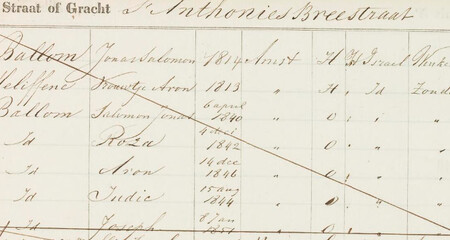 Straat of Gracht St Anthonies Breestraat
Ballom Jonas Salomon 1814 Amst H H Israel
Vrouwtje Aron 1813 " H " Id
6 april
Ballom Salomon Jonas 1840 " O "
4 dec
Id Roza 1842 " O "
14 dec
Id Aron 1846 " O "
15 aug
Id Judic 1844 " O "
8 jan
Id Joseph 1851 " O "